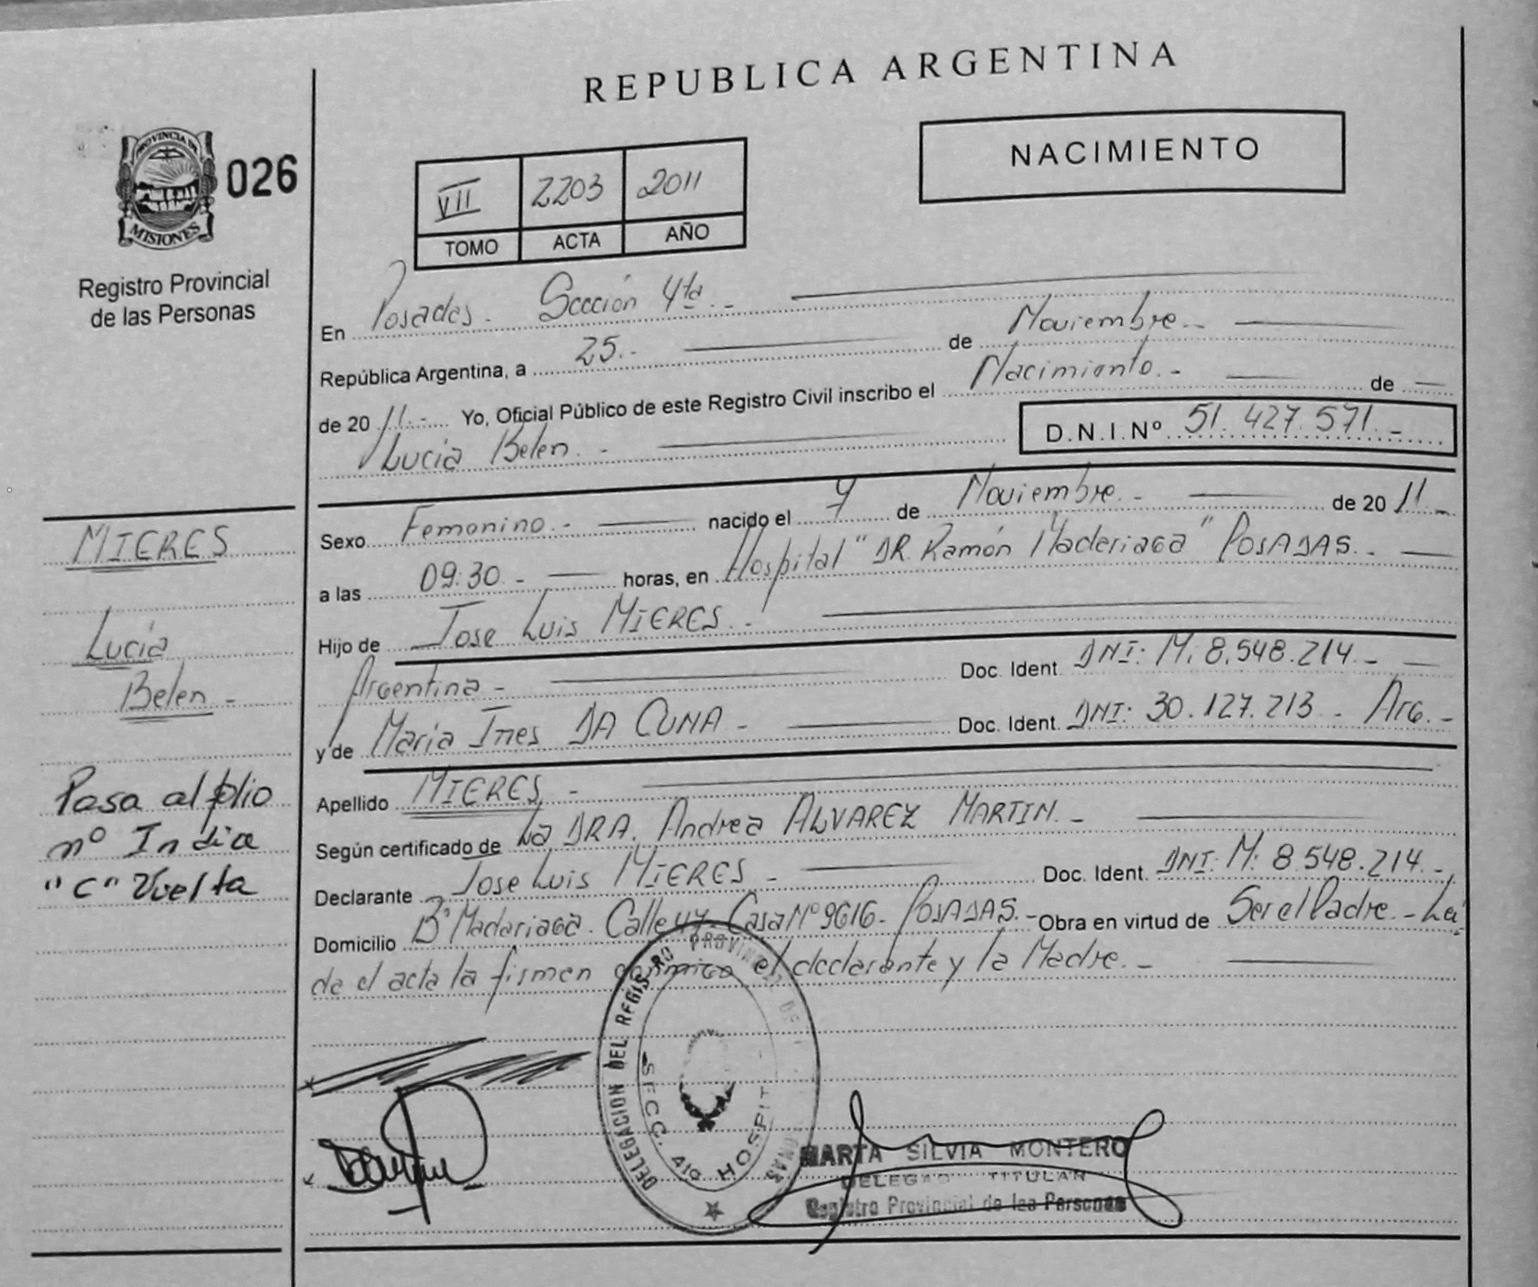 REPUBLICA ARGENTINA
PROVINCIA DE
MISIONES
026
Registro Provincial
de las Personas
NACIMIENTO
VII 2203 2011
TOMO ACTA AÑO
En Posadas. Sección 4ta.-
República Argentina, a 25.- de Noviembre.-
de 2011.- Yo, Oficial Público de este Registro Civil inscribo el Nacimiento.- de
Lucia Belen.- D.N.I.Nº 51.427.571.-
MIERES
Lucia
Belen-
Pasa al folio
nº Indice
"C" Vuelta
Sexo Femenino.- nacido el 4 de Noviembre.- de 2011.-
a las 09:30.- horas, en Hospital "DR. Ramón Maderiaga" POSADAS.-
Hijo de Jose Luis MIERES.-
Argentina- Doc. Ident. DNI: M. 8.548.214.-
y de Maria Ines DA CUNA- Doc. Ident. DNI: 30.127.213- Arg.-
Apellido MIERES-
Según certificado de La DRA. Andrea ALVAREZ MARTIN.-
Declarante Jose Luis MIERES- Doc. Ident. DNI: M: 8.548.214.-
Domicilio Bº Madariaga. Calle Casa Nº 9616- POSADAS.- Obra en virtud de Ser el Padre.- Leí
da el acta la firman conmigo el declarante y la Madre.-
DELEGACION DEL REGISTRO PROVINCIAL DE
SECC. 4ta HOSPIT
MARTA SILVIA MONTERO
DELEGADO TITULAR
Registro Provincial de las Personas